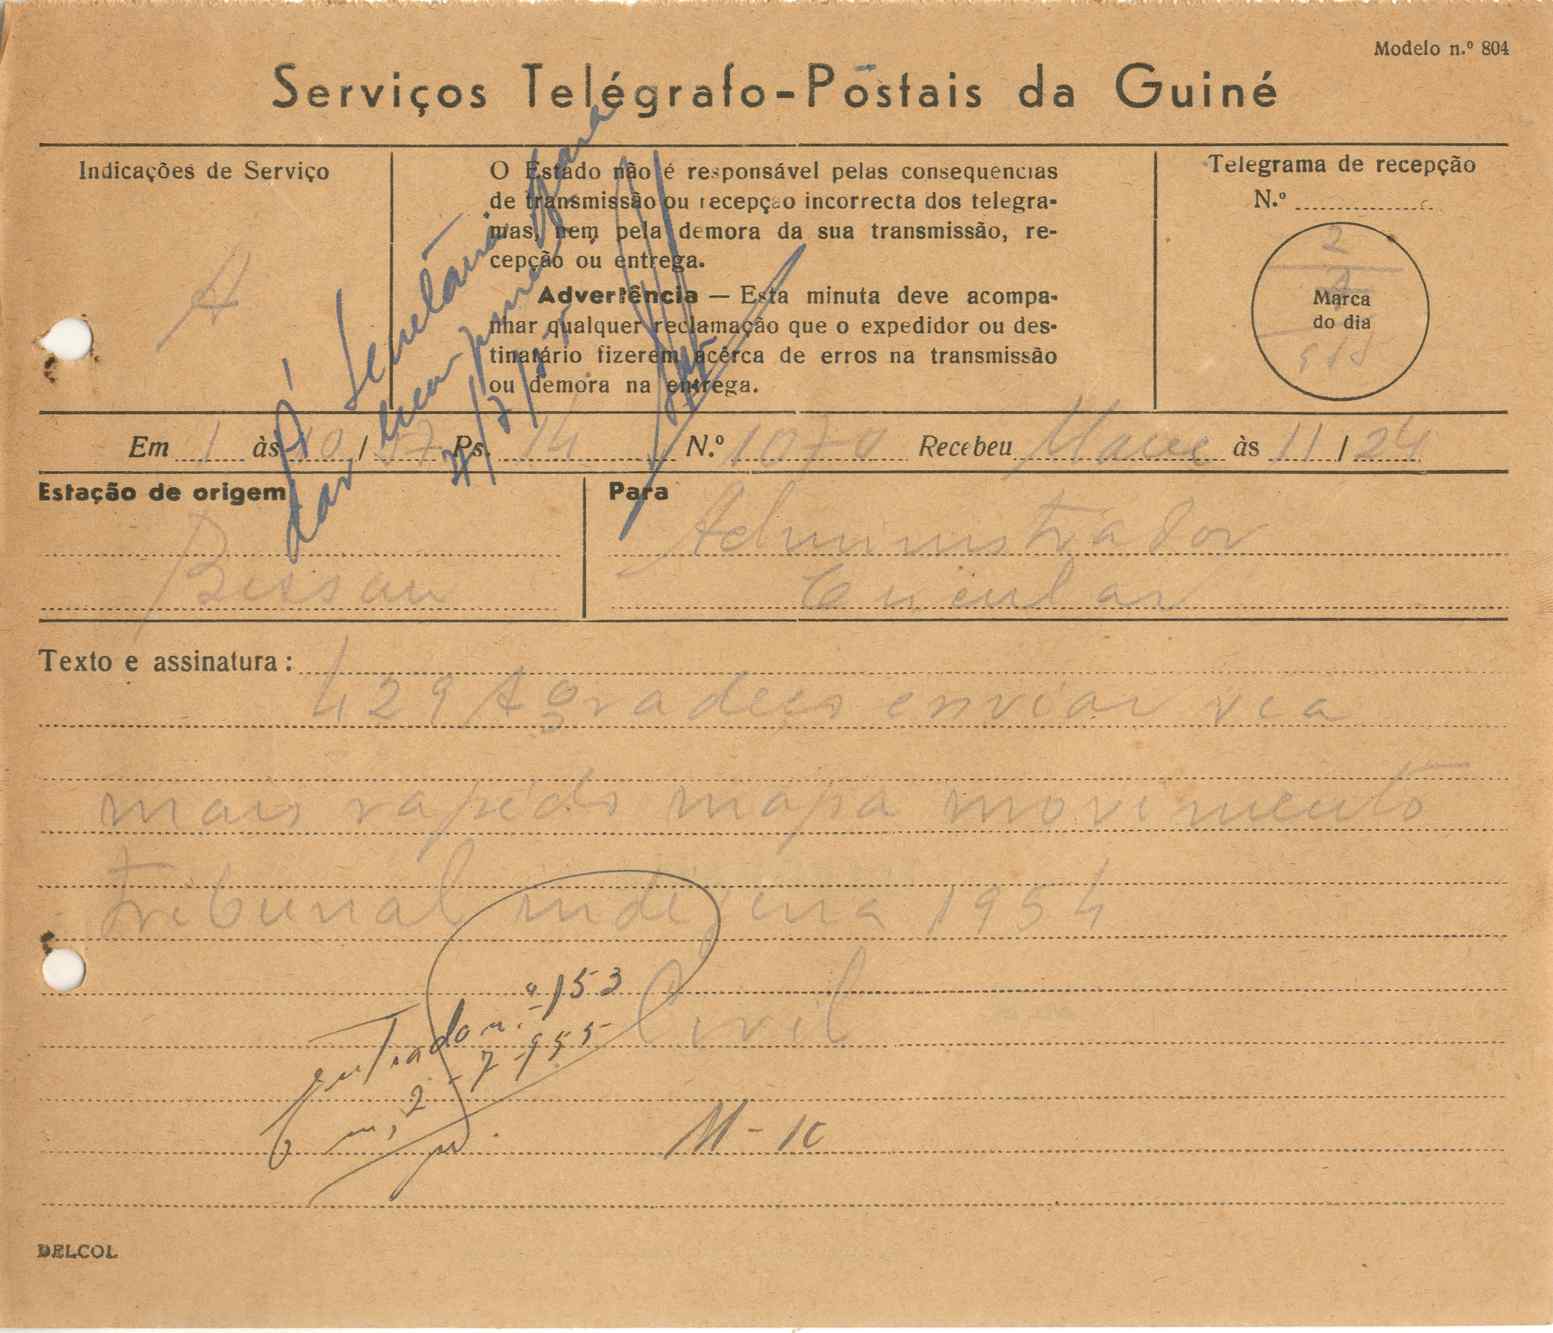 Modelo n.º 804
Serviços Telégrafo-Postais da Guiné
Indicações de Serviço
A
O Estado não é responsável pelas consequências
de transmissão ou recepção incorrecta dos telegra-
mas, nem pela demora da sua transmissão, re-
cepção ou entrega.
Advertência — Esta minuta deve acompa-
nhar qualquer reclamação que o expedidor ou des-
tinatário fizerem acêrca de erros na transmissão
ou demora na entrega.
Telegrama de recepção
N.º
2
7
Marca
do dia
À Secretaria para
dar cumprimento
Em 1 às 10/37 Ps. 14 N.º 1070 Recebeu às 11/24
Estação de origem
Bissau
Para
Administrador
Circular
Texto e assinatura:
429 Agradeço enviar via
mais rapido mapa movimento
tribunal indigena 1954
Civil
Entrado n.º 153
Em, 2-7-955
DELCOL